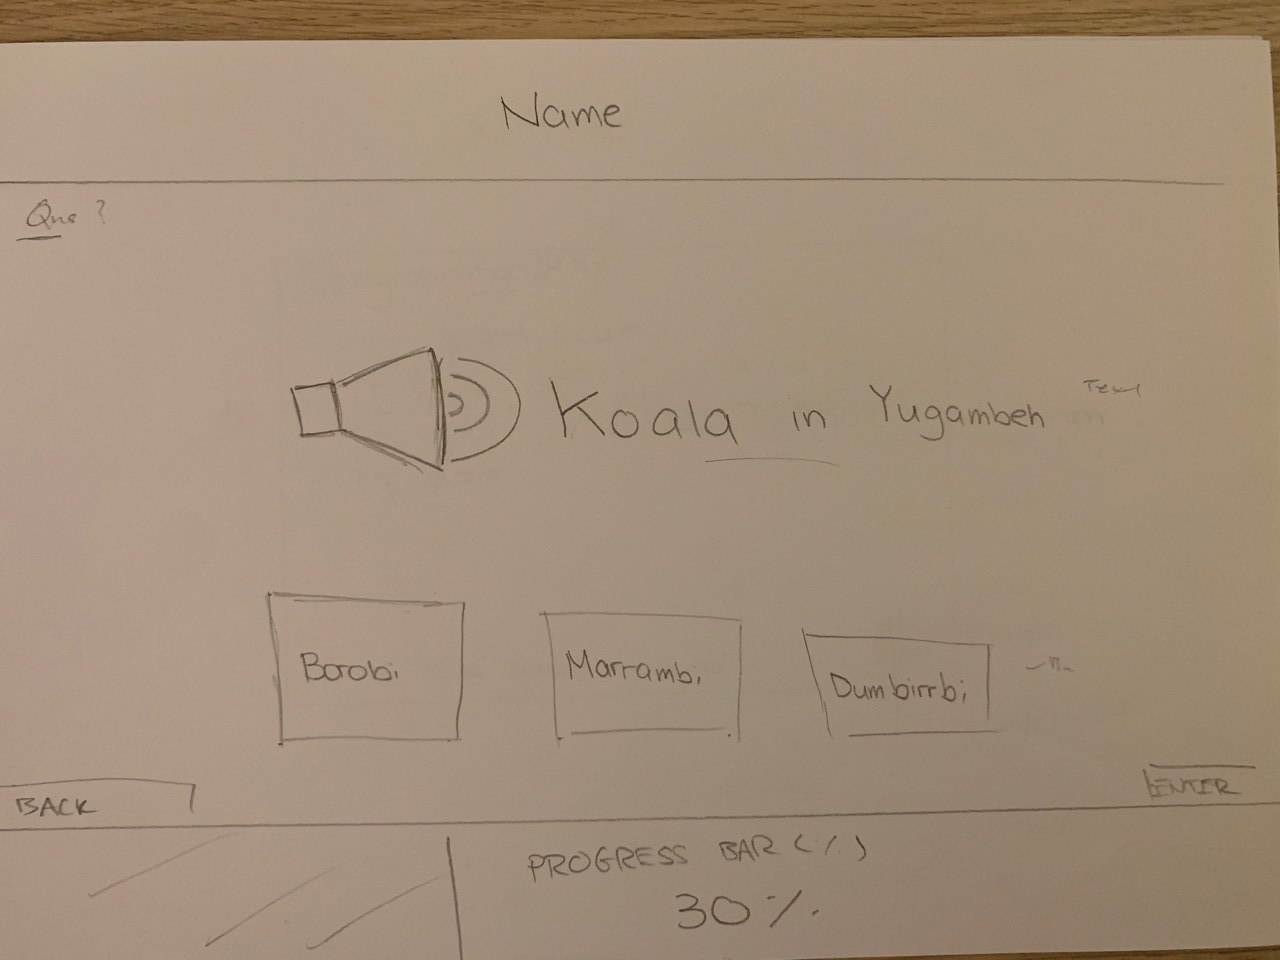 Name
Qns?
Koala in Yugambeh
Text
Borobi
Marrambi
Dumbirrbi
BACK
ENTER
PROGRESS BAR (%)
30%